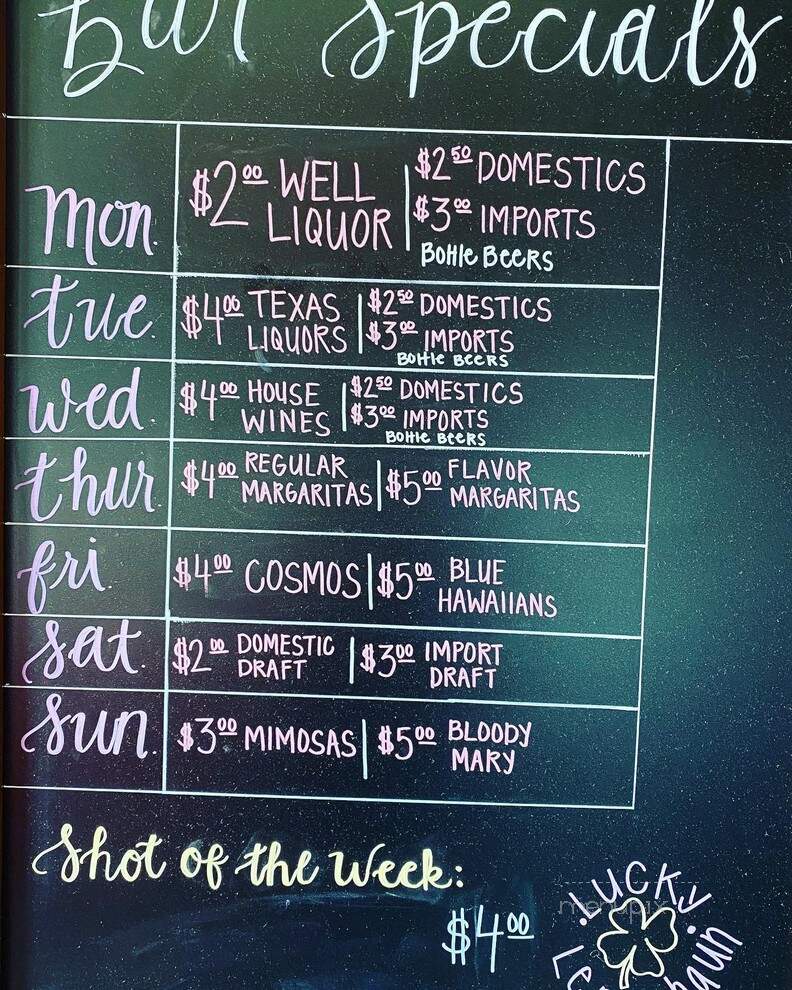 Bar Specials
mon.
$2.00 WELL LIQUOR | $2.50 DOMESTICS
$3.00 IMPORTS
Bottle BeeRS
tue.
$4.00 TEXAS LIQUORS | $2.50 DOMESTICS
$3.00 IMPORTS
Bottle BeeRS
wed.
$4.00 HOUSE WINES | $2.50 DOMESTICS
$3.00 IMPORTS
Bottle BeeRS
thur.
$4.00 REGULAR MARGARITAS | $5.00 FLAVOR MARGARITAS
fri.
$4.00 COSMOS | $5.00 BLUE HAWAIIANS
sat.
$2.00 DOMESTIC DRAFT | $3.00 IMPORT DRAFT
sun.
$3.00 MIMOSAS | $5.00 BLOODY MARY
Shot of the Week:
$4.00
LUCKY
menupix